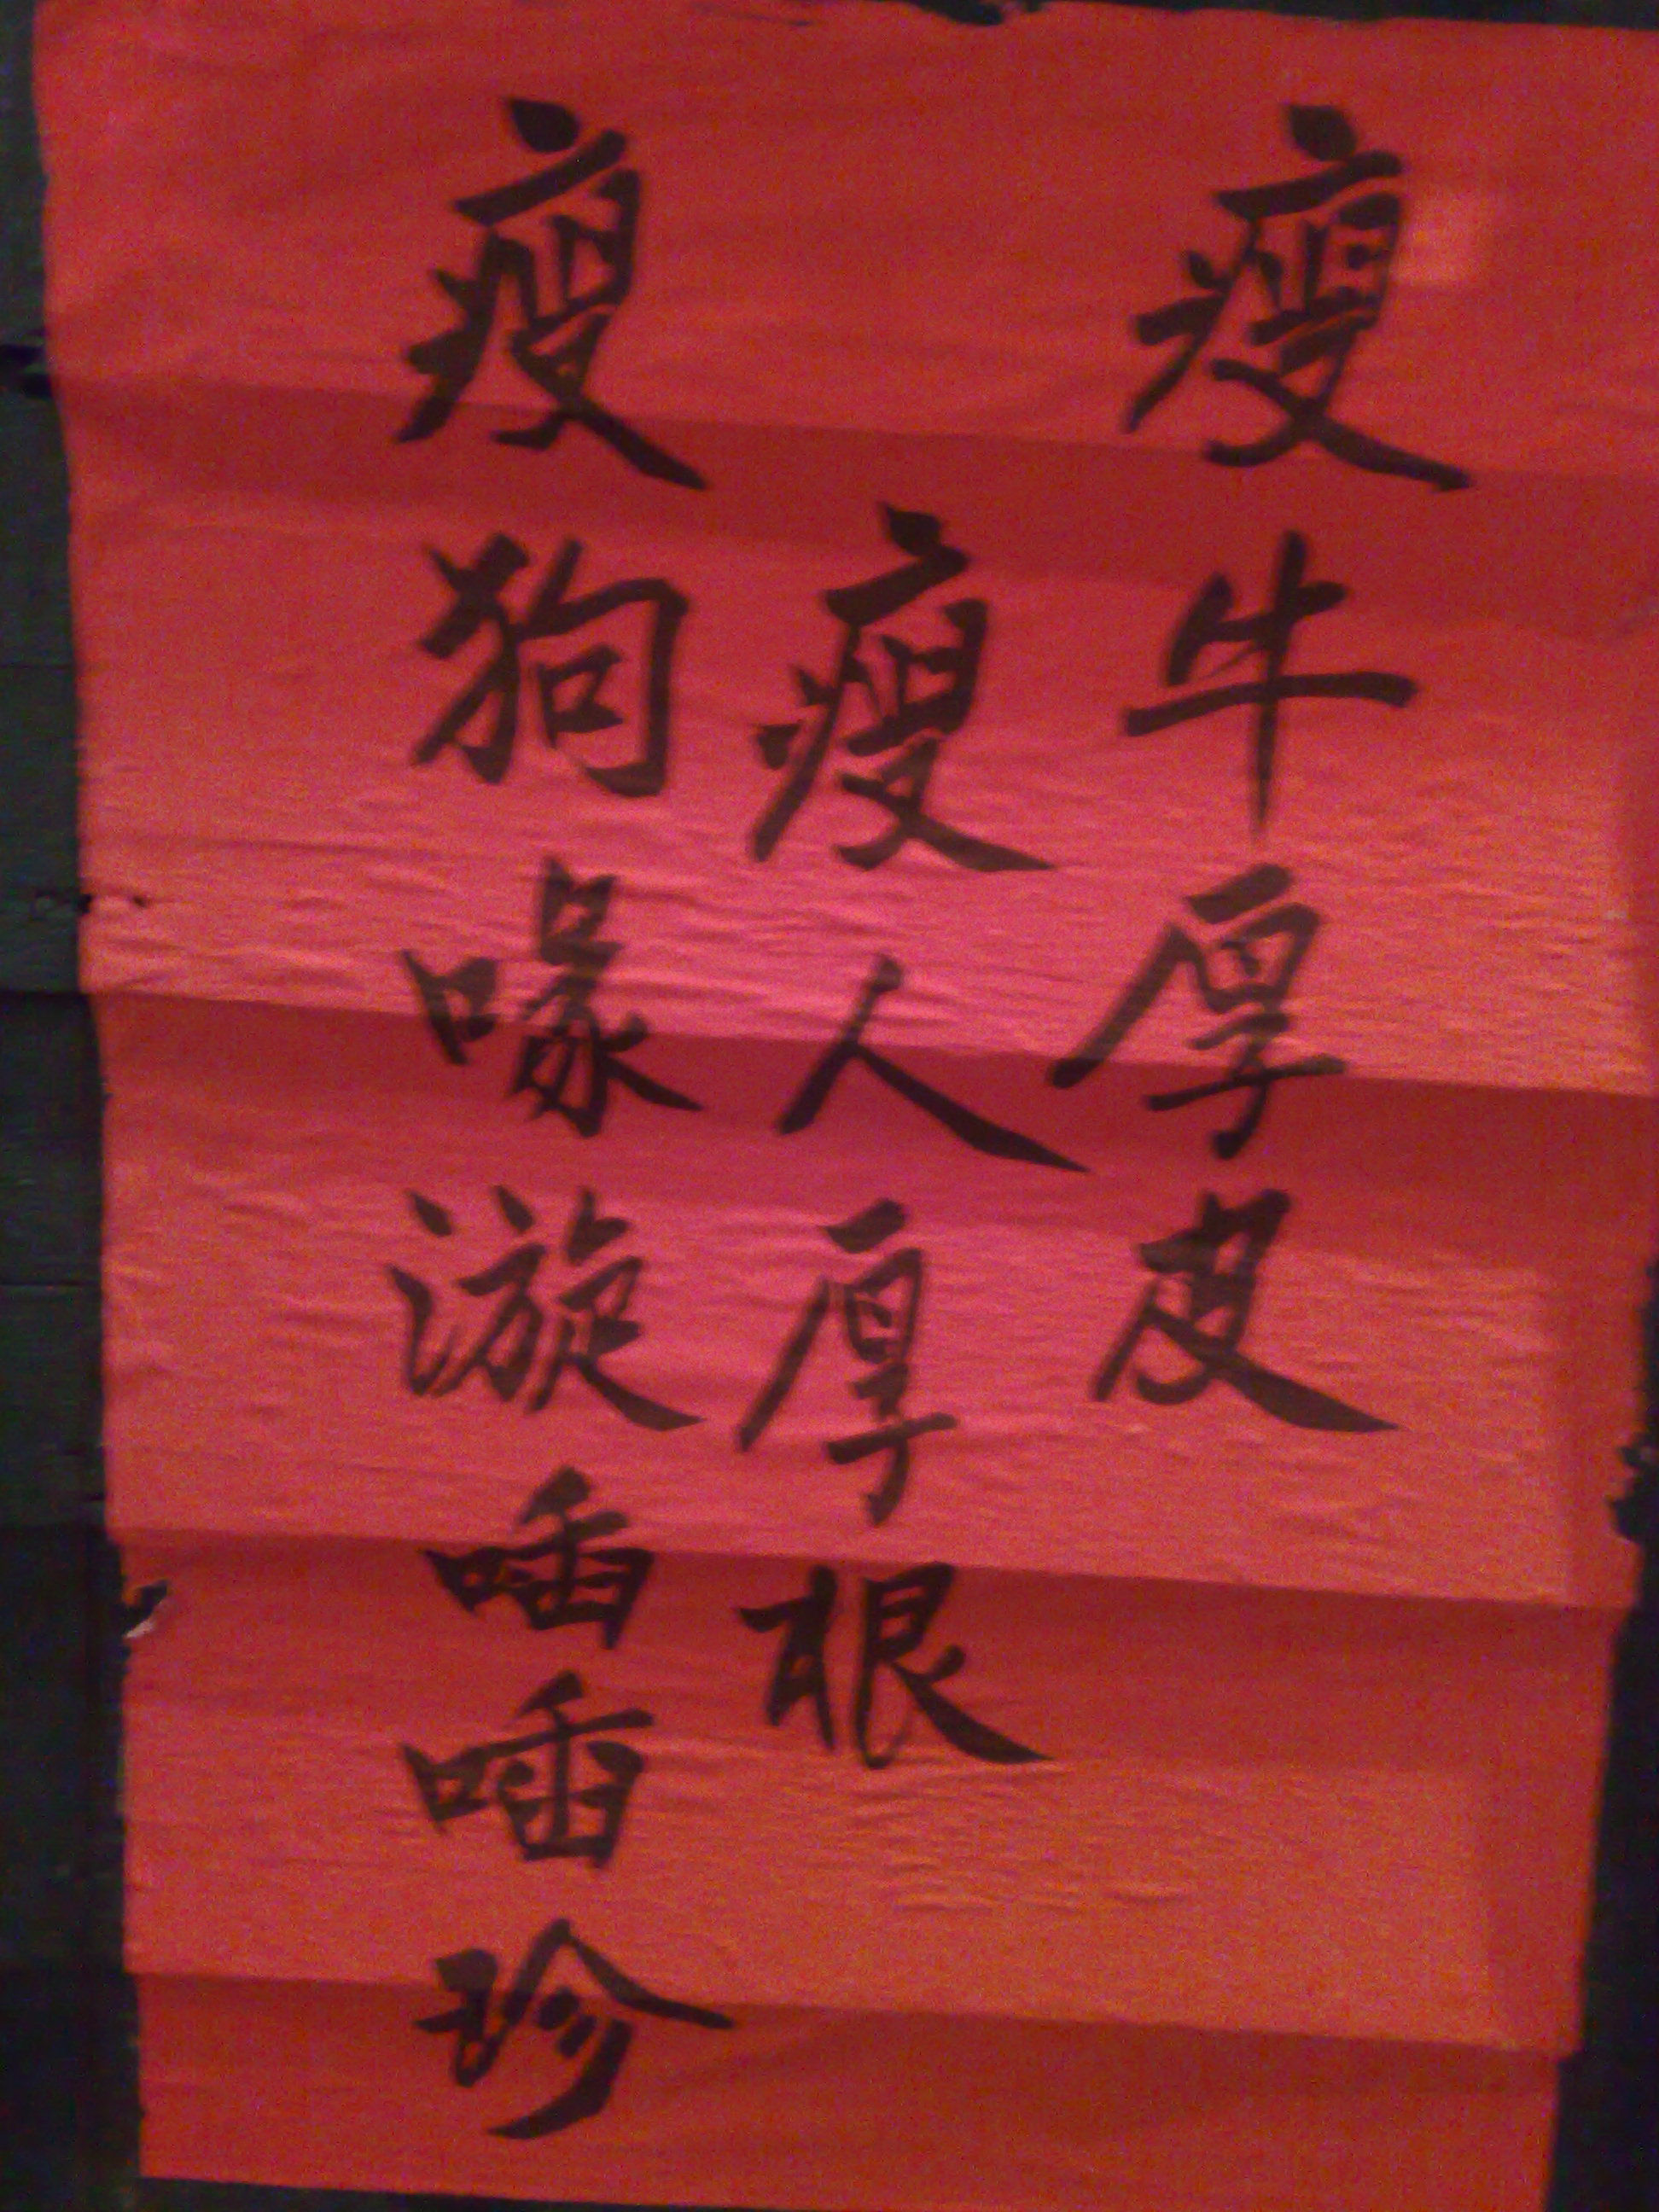 瘦牛厚皮
瘦人厚根
瘦狗喙漩喢喢珍